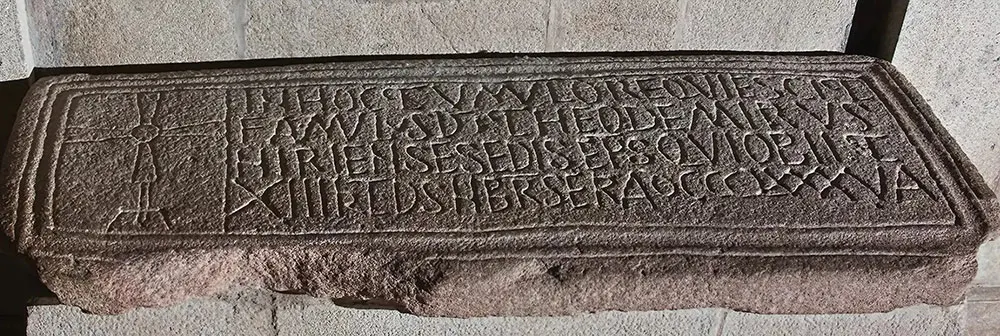 IN HOC TVMVLO REQVIESCIT
FAMVLVS DI THEODEMIRVS
HIRIENSE SEDIS EPS QVI OBIIT
XIII KLDS NBRS ERA DCCCLXXXVA